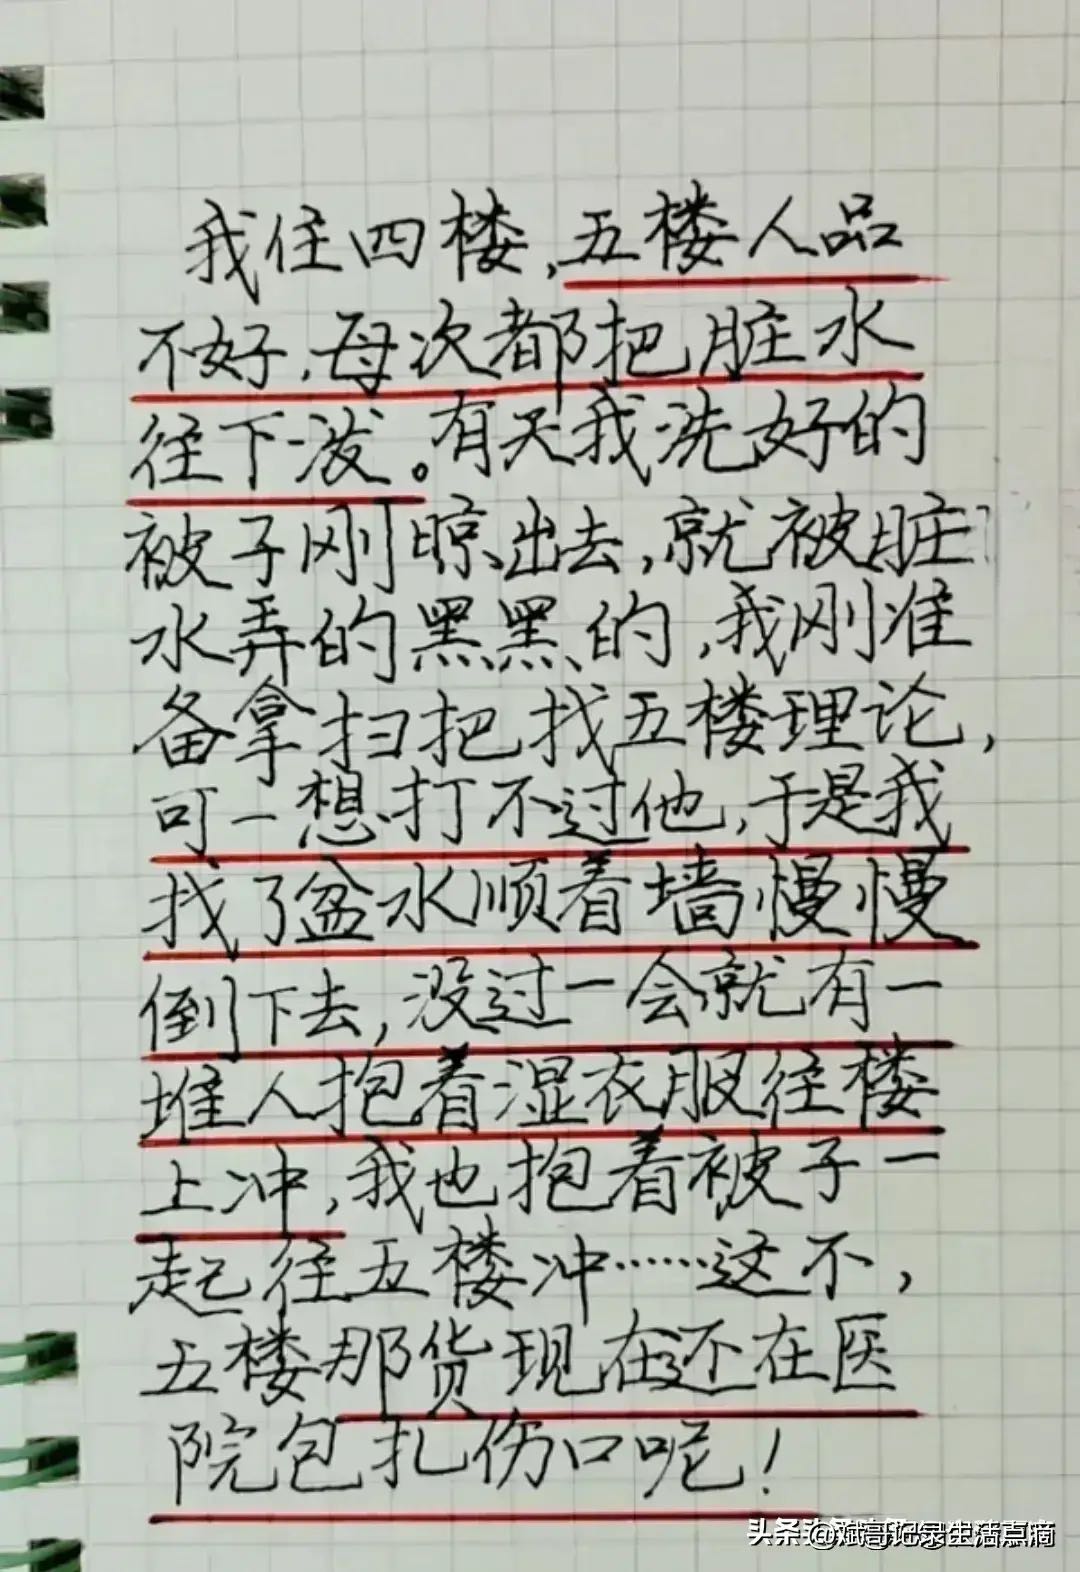 我住四楼,五楼人品
不好,每次都把脏水
往下泼。有天我洗好的
被子刚晾出去,就被脏
水弄的黑黑的,我刚准
备拿扫把找五楼理论,
可一想打不过他,于是我
找了盆水顺着墙慢慢
倒下去,没过一会就有一
堆人抱着湿衣服往楼
上冲,我也抱着被子一
起往五楼冲……这不,
五楼那货现在还在医
院包扎伤口呢!
头条 @斌哥记录生活点滴